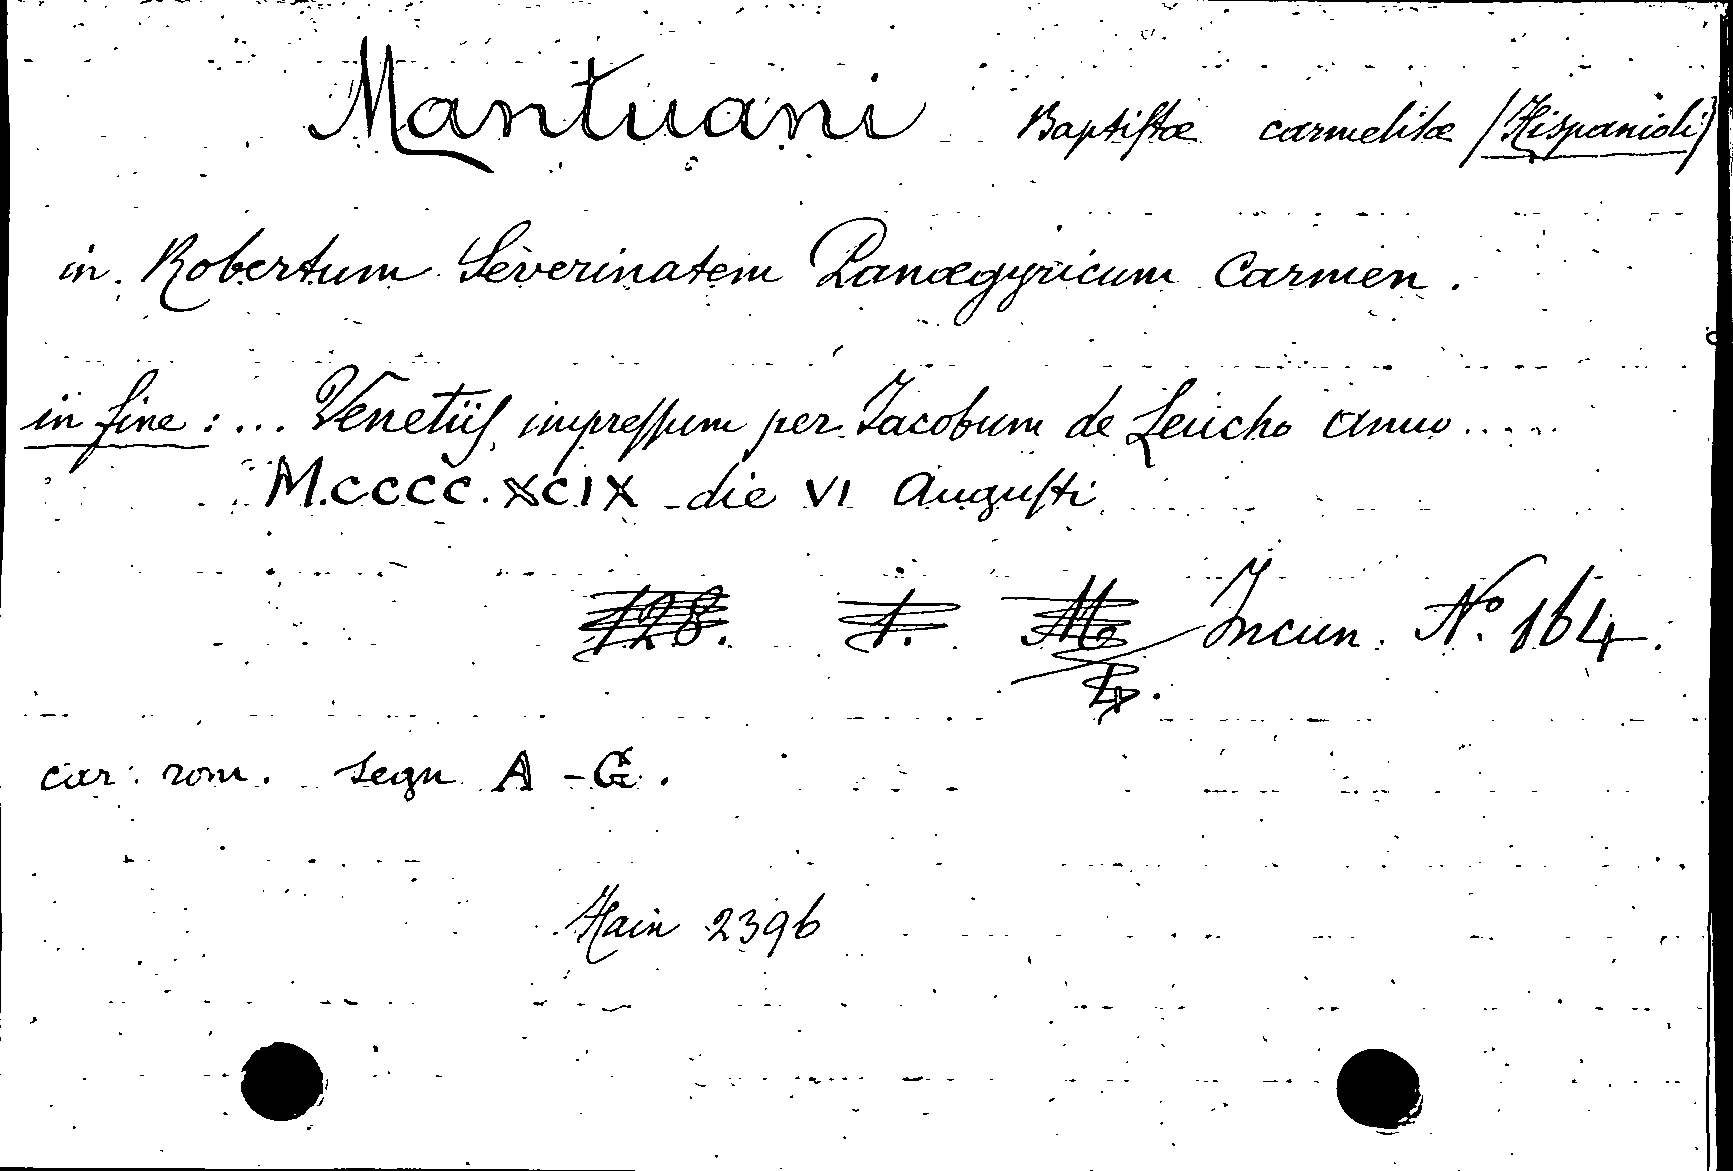 Mantuani Baptiſtæ carmelitæ (Hispanioli)
in Robertum Severinatem Panægyricum Carmen.
in fine: ... Venetiiſ impreſſum per Jacobum de Leucho anno .....
M.CCCC.XCIX die VI Auguſti
128. 1. Incun. Nº 164.
car: rom. segn A - G.
Hain 2396